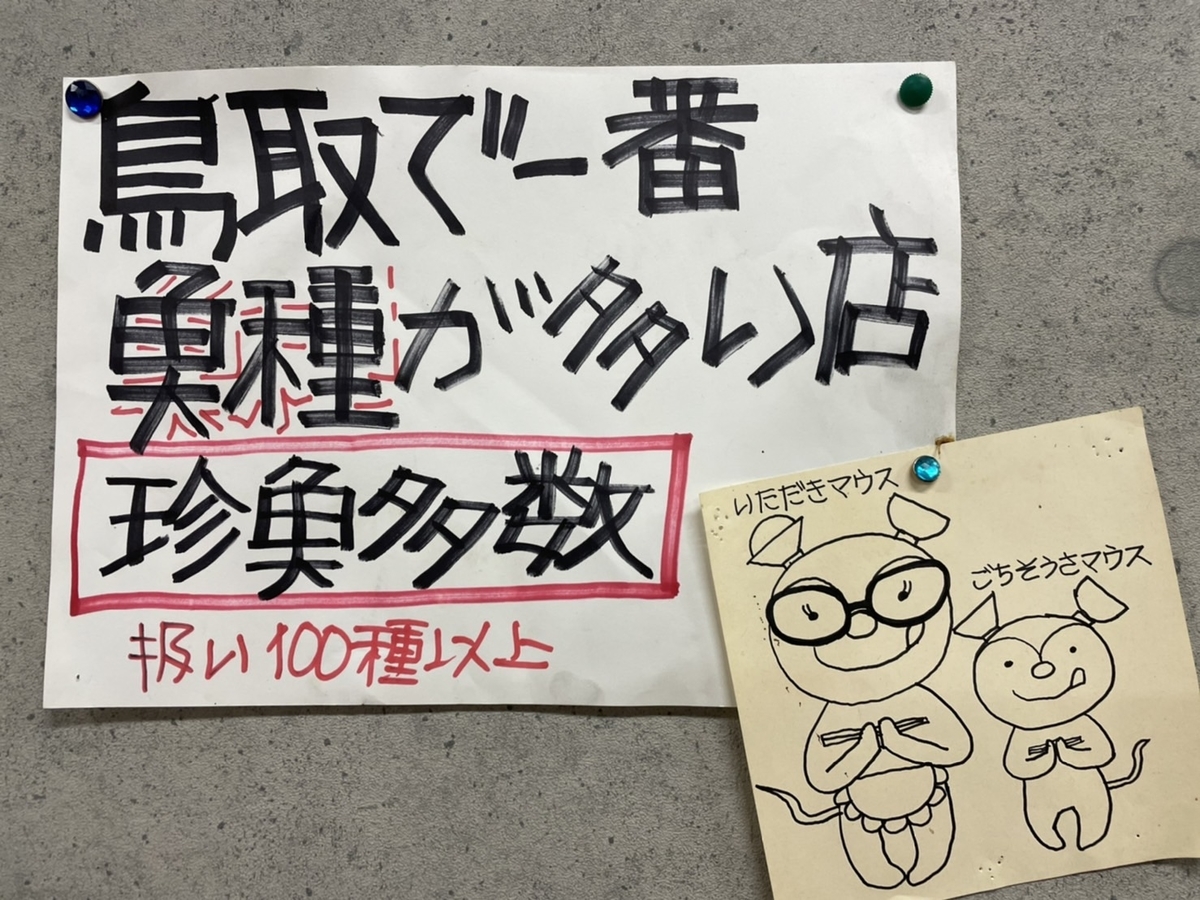 鳥取で一番
魚種が多い店
珍魚多数
扱い100種以上
いただきマウス
ごちそうさマウス